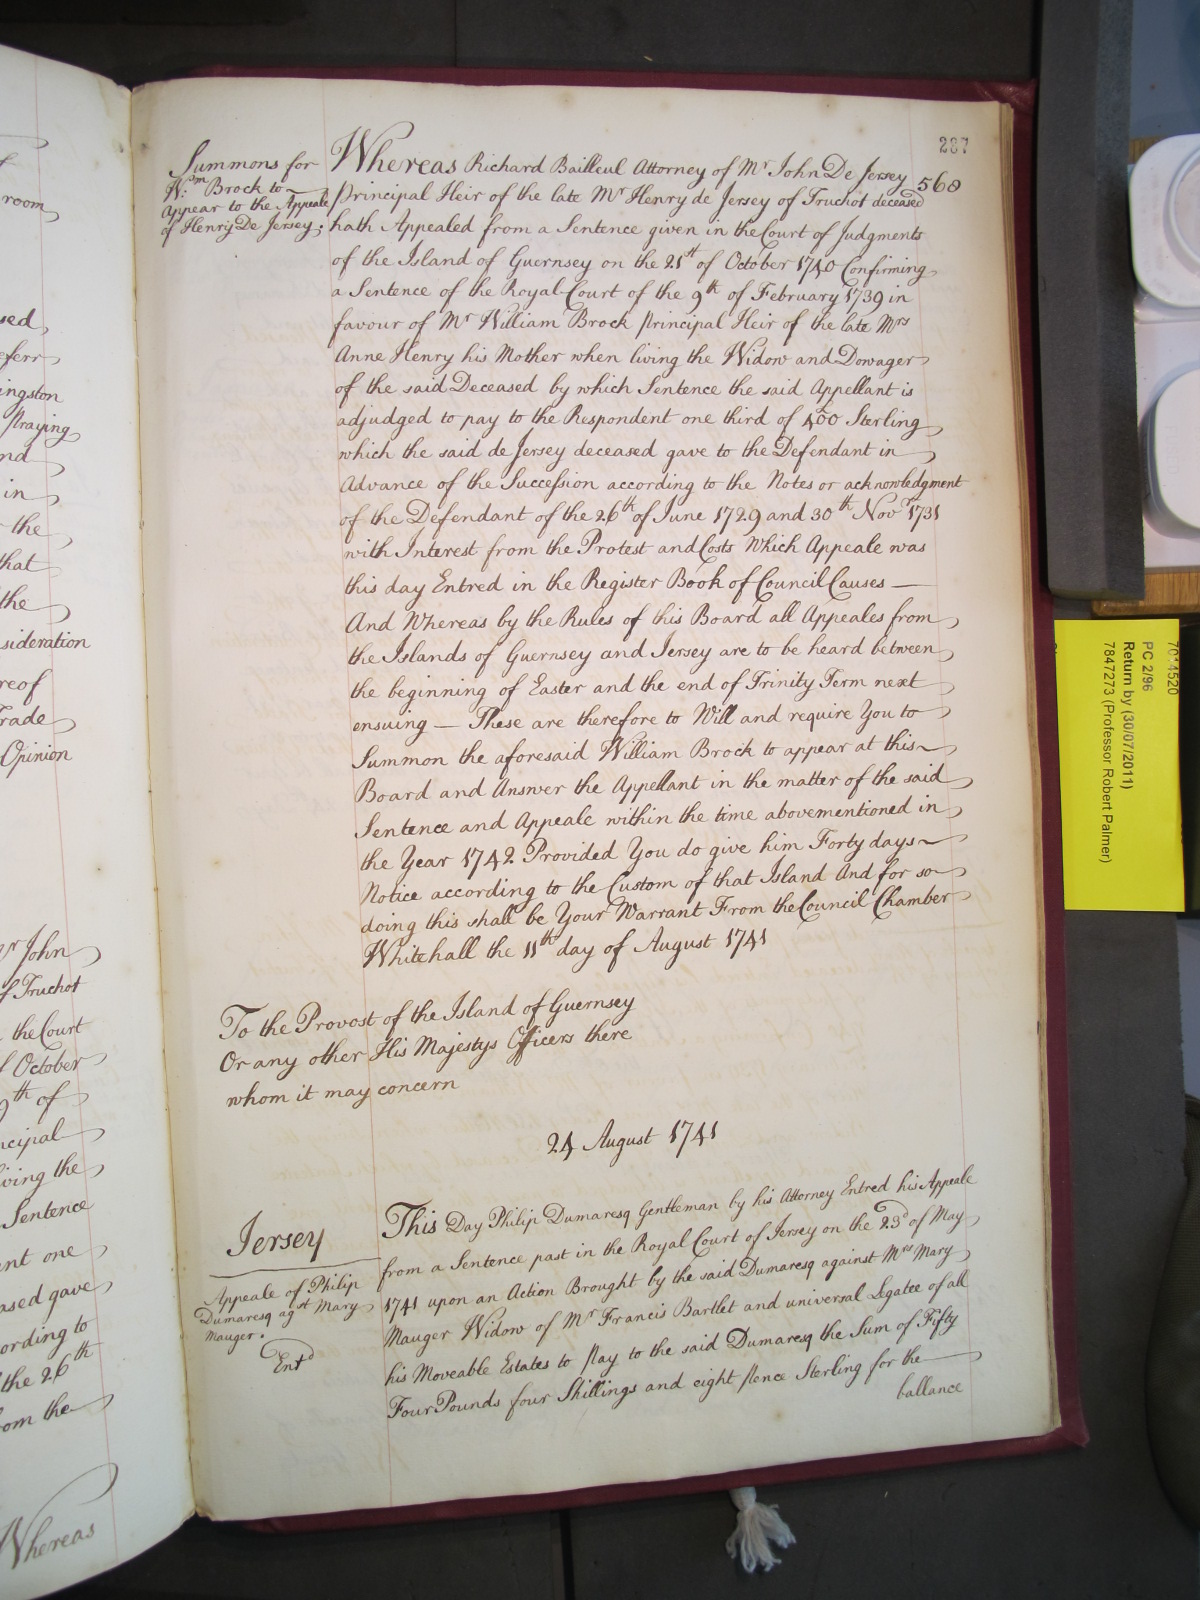 f
room
sed,
eferr
ingston
Praying
nd
in
the
that
the
sideration
reof
Trade
Opinion
Mr John
of Truchot
the Court
October
9th of
ncipal
iving the
Sentence
ant one
ased gave
cording to
the 26th
rom the
Whereas
287
568
Summons for
Wm: Brock to
appear to the Appeale
of Henry De Jersey.
Whereas Richard Bailleul Attorney of Mr John De Jersey
Principal Heir of the late Mr Henry de Jersey of Truchot deceased
hath Appealed from a Sentence given in the Court of Judgments
of the Island of Guernsey on the 21st of October 1740 Confirming
a Sentence of the Royal Court of the 9th of February 1739 in
favour of Mr William Brock Principal Heir of the late Mrs
Anne Henry his Mother when living the Widow and Dowager
of the said Deceased by which Sentence the said Appellant is
adjudged to pay to the Respondent one third of 400 Sterling
which the said de Jersey deceased gave to the Defendant in
Advance of the Succession according to the Notes or acknowledgment
of the Defendant of the 26th of June 1729 and 30th Novr 1731
with Interest from the Protest and Costs Which Appeale was
this day Entred in the Register Book of Council Causes —
And Whereas by the Rules of this Board all Appeales from
the Islands of Guernsey and Jersey are to be heard between
the beginning of Easter and the end of Trinity Term next
ensuing — These are therefore to Will and require You to
Summon the aforesaid William Brock to appear at this
Board and Answer the Appellant in the matter of the said
Sentence and Appeale within the time abovementioned in
the Year 1742 Provided You do give him Forty days
Notice according to the Custom of that Island And for so
doing this shall be Your Warrant From the Council Chamber
Whitehall the 11th day of August 1741
To the Provost of the Island of Guernsey
Or any other His Majestys Officers there
whom it may concern
24 August 1741
Jersey
Appeale of Philip
Dumaresq agst Mary
Mauger.
Entd
This Day Philip Dumaresq Gentleman by his Attorney Entred his Appeale
from a Sentence past in the Royal Court of Jersey on the 23d of May
1741 upon an Action Brought by the said Dumaresq against Mrs Mary
Mauger Widow of Mr Francis Bartlet and universal Legatee of all
his Moveable Estates to Pay to the said Dumaresq the Sum of Fifty
Four Pounds four Shillings and eight pence Sterling for the
ballance
7014520
PC 2/96
Return by (30/07/2011)
7847273 (Professor Robert Palmer)